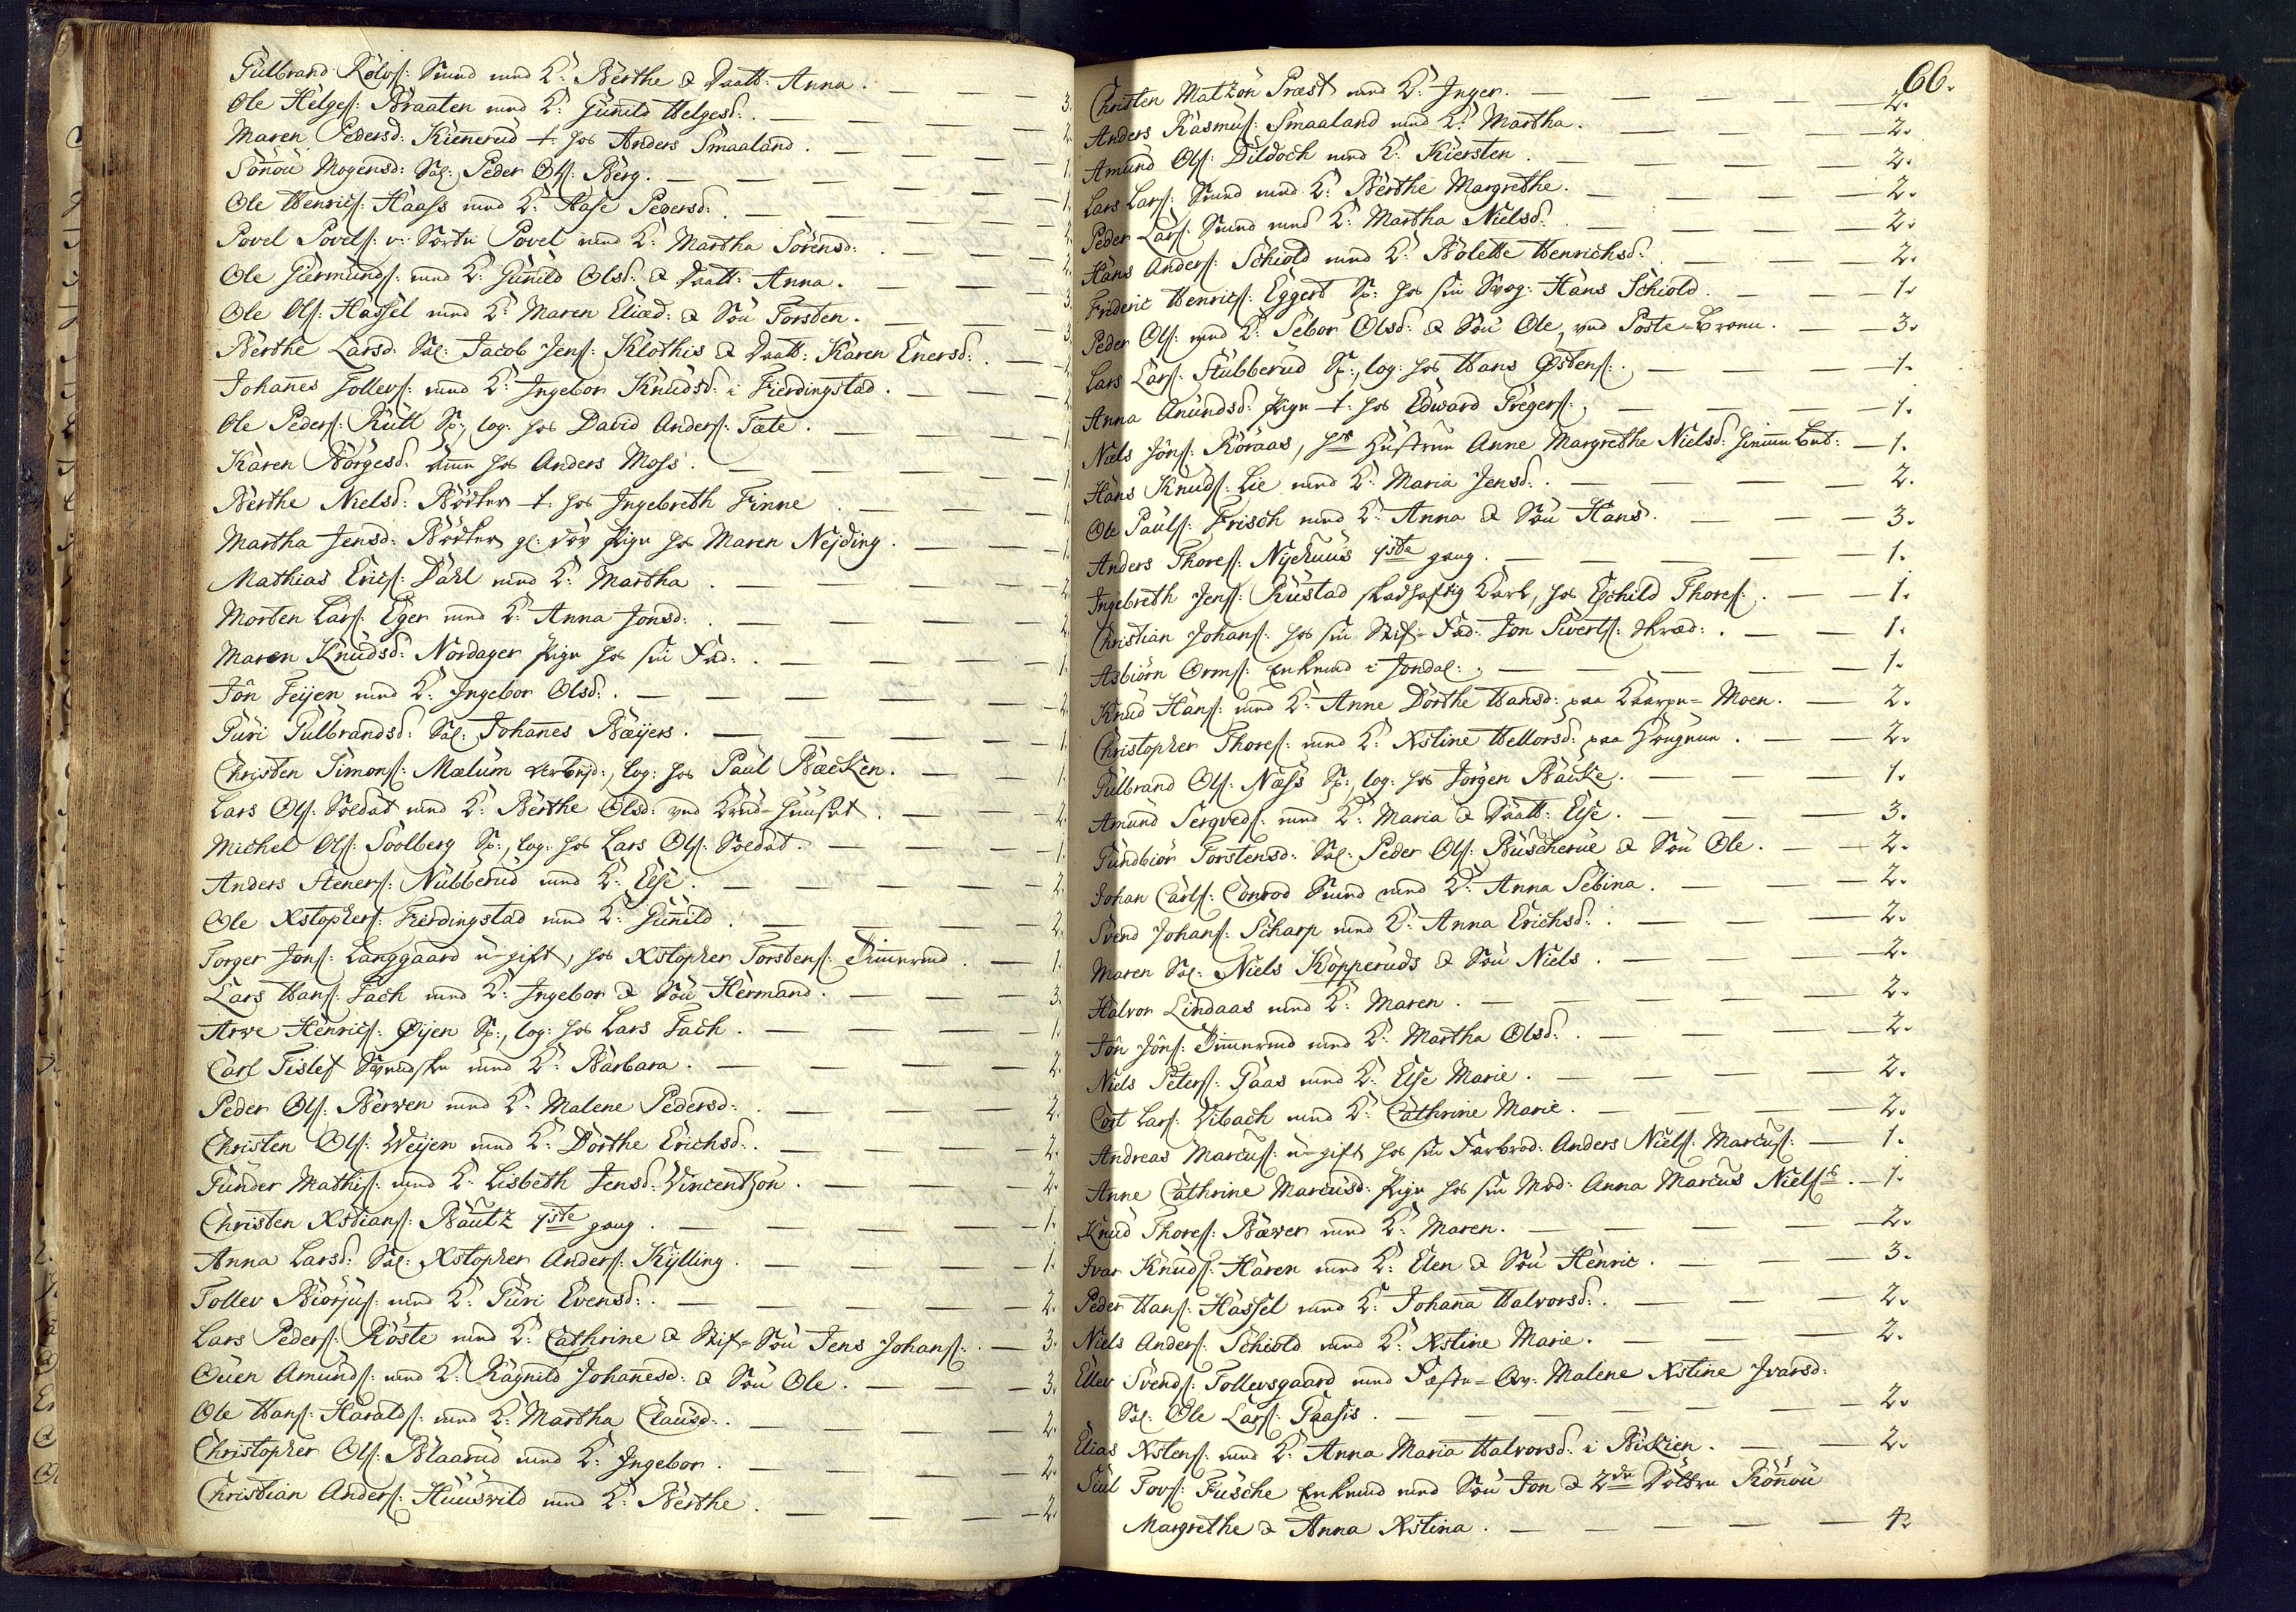 Gulbrand Rolvs: Smed med K: Berthe & Daatt: Anna. 3.
Ole Helges: Braaten med K: Gunild Helgesd: 2.
Maren Pedersd: Kiennerud t. hos Anders Smaaland. 1.
Sönnou Mogensd: Sal: Peder Ols: Berg. 1.
Ole Henrics: Haass med K: Aase Pedersd: 2.
Povel Povels: v: Povel med K: Martha Sörensd: 2.
Ole Giermunds: med K: Gunild Olsd: & Daatt: Anna. 3.
Ole Ols: Hassel med K: Maren Eliæd: & Sön Torsten. 3.
Berthe Larsd: Sal: Jacob Jens: Klothis & Daatt: Karen Enersd:
Johanes Tollevs: med K: Ingebor Knudsd: i Fierdingstad. 2.
Ole Peders: Rull Sv:, log: hos David Anders: Tæte. 1.
Karen Börgesd: Amme hos Anders Moss. 1.
Berthe Nielsd: Bödker t. hos Ingebreth Finne 1.
Martha Jensd: Bödker gl: döv Pige hos Maren Nejding. 1.
Mathias Erics: Dahl med K: Martha. 2.
Morten Lars: Eger med K: Anna Jonsd: 2.
Maren Knudsd: Nordager Pige hos sin Fad: 1.
Jön Feijen med K: Ingebor Olsd: 2.
Guri Gulbrandsd: Sal: Johanes Bæijers. 1.
Christen Simons: Mælum Arbejd:, log: hos Paul Bæcken. 1.
Lars Ols: Soldat med K: Berthe Olsd: ved Krud-Huuset. 2.
Michel Ols: Soolberg Sv:, log: hos Lars Ols: Soldat. 1.
Anders Steners: Nubberud med K: Else. 2.
Ole Xstophers: Fierdingstad med K: Gunild. 2.
Torger Jons: Langgaard u-gift, hos Xstopher Torstens: Timermd. 1.
Lars Hans: Fach med K: Ingebor & Sön Hermand. 3.
Arve Henrics: Øijen Sv:, log: hos Lars Fach. 1.
Carl Tislef Svendske med K: Barbara. 2.
Peder Ols: Berven med K: Malene Pedersd: 2.
Christen Ols: Weijen med K: Dorthe Erichsd: 2.
Gunder Mathis: med K: Lisbeth Jensd: Vincentzon. 2.
Christen Xstians: Bautz 1ste gang. 1.
Anna Larsd: Sal: Xstopher Anders: Kylling. 1.
Tollev Biörjus: med K: Guri Evensd: 2.
Lars Peders: Röste med K: Cathrine & Stif-Sön Jens Johans: 3.
Ouen Amunds: med K: Ragnild Johanesd: & Sön Ole. 3.
Ole Hans: Haralds: med K: Martha Clausd: 2.
Christopher Ols: Blaarud med K: Ingebor. 2.
Christian Anders: Huusvild med K: Berthe. 2.
66.
Christen Matzön Præst med K: Inger. 2.
Anders Rasmus: Smaaland med K: Martha. 2.
Amund Ols: Dildoch med K: Kiersten. 2.
Lars Lars: Smed med K: Berthe Margrethe. 2.
Peder Lars: Smed med K: Martha Nielsd: 2.
Hans Anders: Schiold med K: Bolette Henrichsd: 2.
Frideric Henrics: Eggert Sv: hos sin Svog: Hans Schiold. 1.
Peder Ols: med K: Sebor Olsd: & Sön Ole, ved Poste-Broen. 3.
Lars Lars: Stubberud Sv:, log: hos Hans Østens: 1.
Anna Anundsd: Pige t. hos Edward Gregers: 1.
Niels Jöns: Röraas, hs Hustrue Anne Margrethe Nielsd: hiemme bet: 1.
Hans Knuds: Lie med K: Maria Jensd: 2.
Ole Pauls: Frisch med K: Anna & Sön Hans. 3.
Anders Thores: Nyehuus 1ste gang. 1.
Ingebreth Jens: Rustad skadhaftig Karl, hos Eschild Thores: 1.
Christian Johans: hos sin Stif-Fad: Jon Siverts: Skræd: 1.
Asbiörn Orms: Enkemd i Jondal: 1.
Knud Hans: med K: Anne Dorthe Hansd: paa Moen. 2.
Christopher Thores: med K: Xstine Hellorsd: paa Haugene. 2.
Gulbrand Ols: Næss Sv:, log: hos Jörgen Bæcke. 1.
Amund Sergveds: med K: Maria & Daatt: Else. 3.
Gundbiör Torstensd: Sal: Peder Ols: Buscherue & Sön Ole. 2.
Johan Carls: Conrod Smed med K: Anna Sebina. 2.
Svend Johans: Scharp med K: Anna Erichsd: 2.
Maren Sal: Niels Kopperuds & Sön Niels. 2.
Halvor Lindaas med K: Maren. 2.
Jön Jöns: Timermd med K: Martha Olsd: 2.
Niels Peters: Gaas med K: Else Marie. 2.
Cort Lars: Vibach med K: Cathrine Marie. 2.
Andreas Marcus: u-gift hos sin Farbrod: Anders Niels: Marcus: 1.
Anne Cathrine Marcusd: Pige hos sin Mod: Anna Marcus Nielss. 1.
Knud Thores: Bæver med K: Maren. 2.
Ivar Knuds: Haren med K: Elen & Sön Henric. 3.
Peder Hans: Hassel med K: Johana Halvorsd: 2.
Niels Anders: Schiold med K: Xstine Marie. 2.
Ellev Svends: Tollevsgaard med Fæste-Qv: Malene Xstine Ivarsd:
Sal: Ole Lars: Paasis. 2.
Elias Xstens: med K: Anna Maria Halvorsd: i Bikien. 2.
Siul Tovs: Fusche Enkemd med Sön Jon & 2de Döttre Rönnou
Margrethe & Anna Xstina. 4.